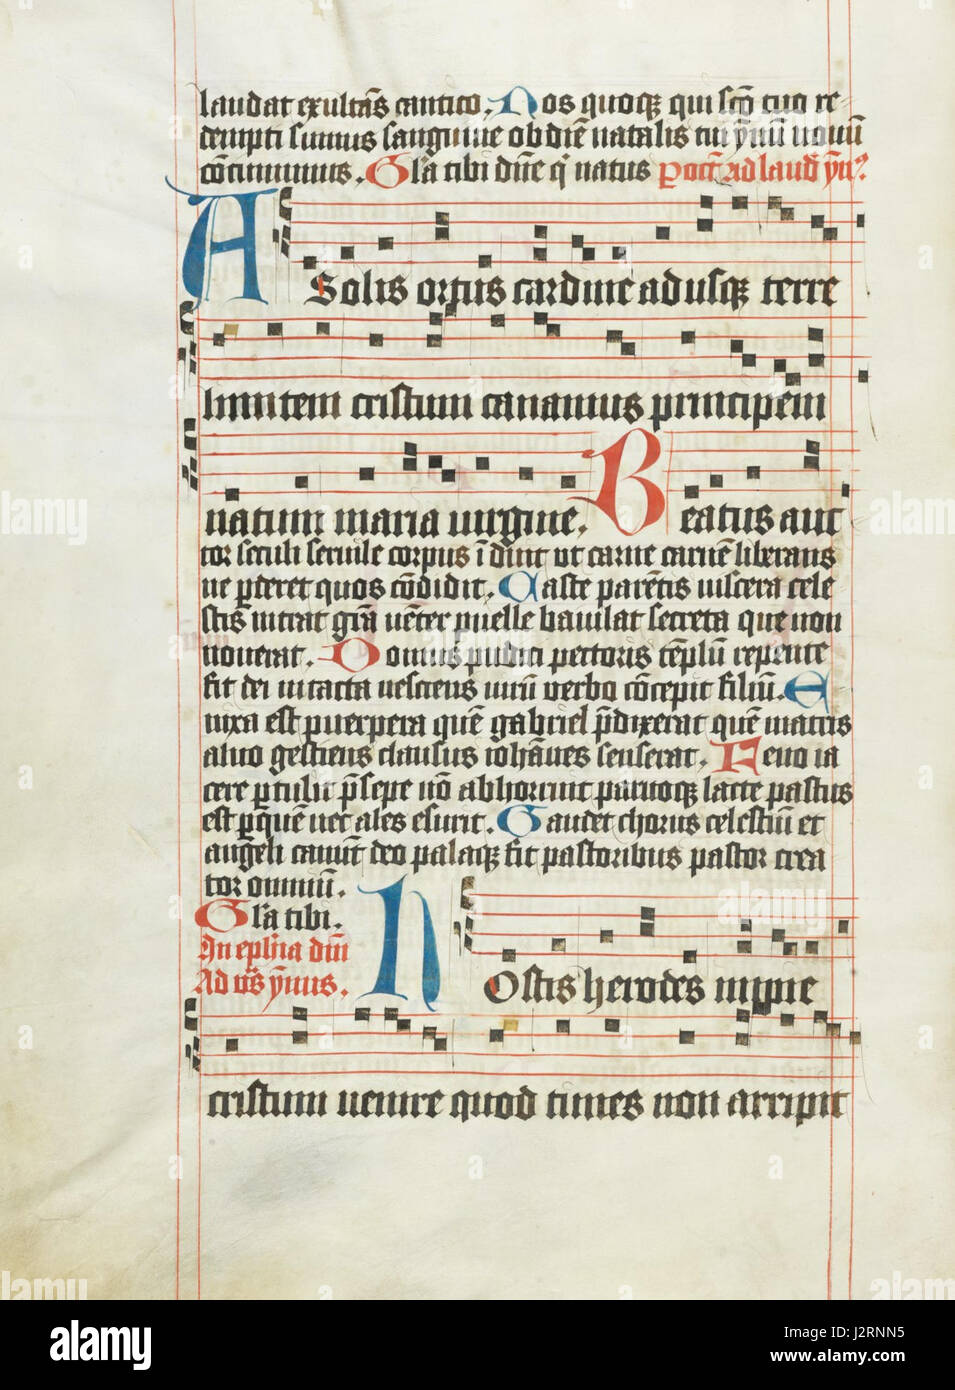 laudat exultās cantico. Nos quoqꝫ qui scō tuo re-
dempti sumus sanguine ob diē natalis tui ymnū nouū
cōcinimus. Glia tibi dñe qͥ natus
A Solis ortus cardine ad usqꝫ terre
limitem cristum canamus principem
natum maria uirgine. Beatus auc
tor seculi seruile corpus īduit ut carne carnē liberans
ne ꝑderet quos cōdidit. Caste parētis uiscera cele
stis intrat grā uēter puelle baiulat secreta que non
nouerat. Domus pudici pectoris tēplū repente
fit dei intacta nesciens uirū verbo cōcepit filiū. E
nixa est puerpera quē gabriel p̄dixerat quē matris
aluo gestiens clausus iohānes senserat. Feno ia
cere ꝑtulit p̄sepe nō abhorruit paruoqꝫ lacte pastus
est ꝑ quē nec ales esurit. Gaudet chorus celestiū et
angeli canūt deo palāqꝫ fit pastoribus pastor crea
tor omniū.
Glia tibi.
In epħia dñi
Ad us̄ ymus.
Hostis herodes impie
cristum uenire quod times non arripit
alamy
alamy
Image ID: J2RNN5
www.alamy.com